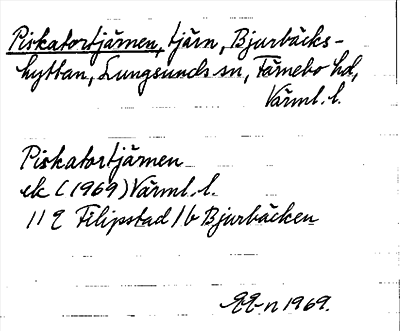 Piskatortjärnen, tjärn, Bjurbäcks-
hyttan, Lungsunds sn, Färnebo hd,
Värml. l.
Piskatortjärnen
ek (1969) Värml. l.
11 E Filipstad 1 b Bjurbäcken
n 1969.